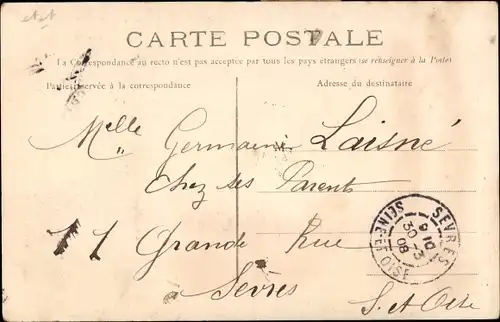 CARTE POSTALE
La Correspondance au recto n'est pas acceptée par tous les pays étrangers (se renseigner à la Poste)
Partie réservée à la correspondance
Adresse du destinataire
Melle Germaine Laisné
Chez ses Parents
11 Grande Rue
Sèvres
S. et Oise
SEVRES
9 10
30 - 3
08
SEINE-ET-OISE